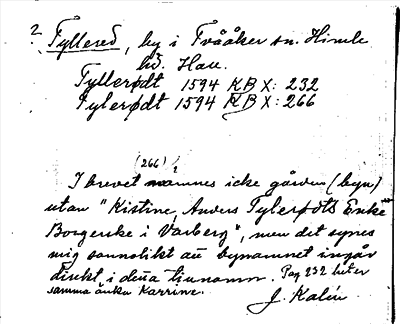 ? Tyllered, by i Tvååker sn. Himle
hd. Hall.
Tyllerødt 1594 KB X: 232
Tylerødt 1594 KB X: 266
(266)
I brevet namnes icke gården (byn)
utan "Kistine, Anders Tylerødts Enke
Borgerske i Varberg", men det synes
mig sannolikt att bynamnet ingår
direkt i detta tilnamn. Pag 232 heter
samma änka Karrine.
J. Kalén